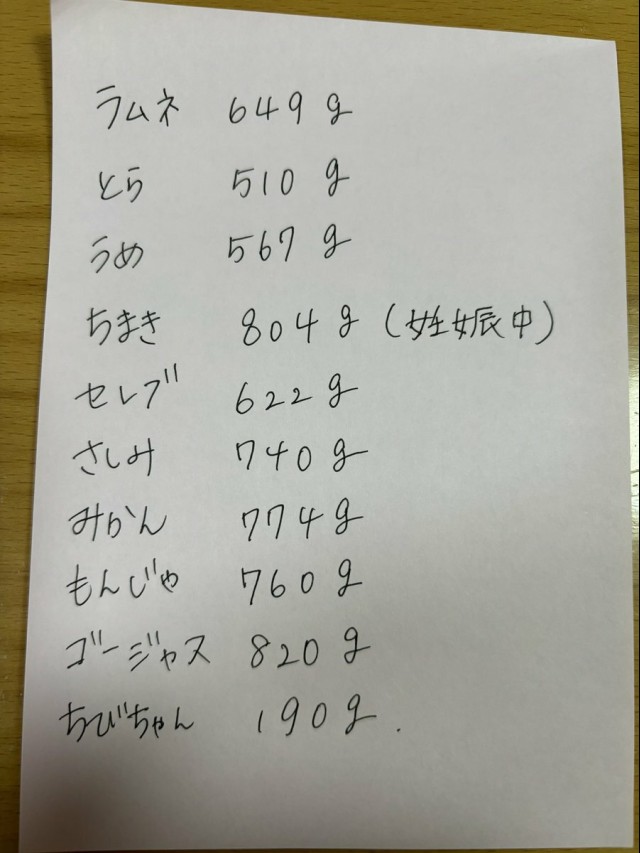 ラムネ 649g
とら 510g
うめ 567g
ちまき 804g (妊娠中)
セレブ 622g
さしみ 740g
みかん 774g
もんじゃ 760g
ゴージャス 820g
ちびちゃん 190g.